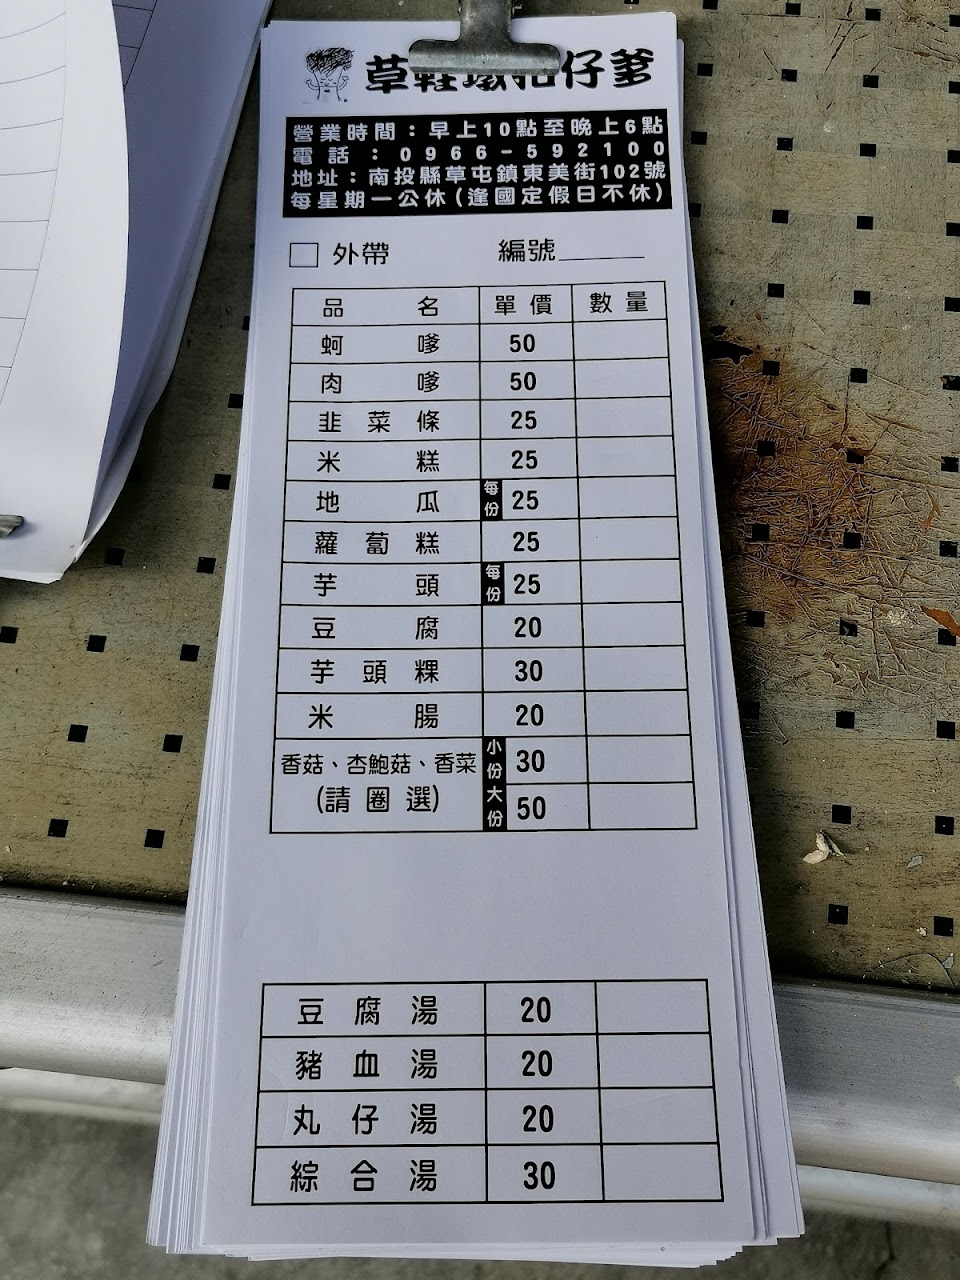 草鞋墩蚵仔爹
營業時間：早上10點至晚上6點
電話：0966-592100
地址：南投縣草屯鎮東美街102號
每星期一公休(逢國定假日不休)
外帶 編號
品名 單價 數量
蚵嗲 50
肉嗲 50
韭菜條 25
米糕 25
地瓜 每份 25
蘿蔔糕 25
芋頭 每份 25
豆腐 20
芋頭粿 30
米腸 20
香菇、杏鮑菇、香菜 小份 30
(請圈選) 大份 50
豆腐湯 20
豬血湯 20
丸仔湯 20
綜合湯 30